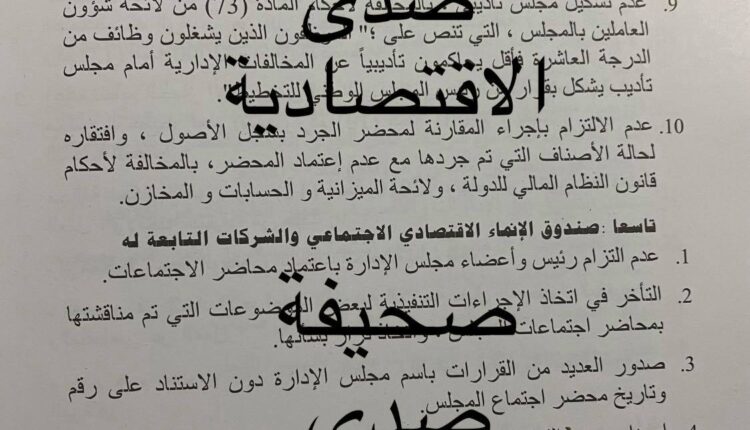 9. عدم تشكيل مجلس تأديب، بالمخالفة لأحكام المادة (73) من لائحة شؤون
العاملين بالمجلس ، التي تنص على ؛" الموظفون الذين يشغلون وظائف من
الدرجة العاشرة فأقل يحاكمون تأديبياً عن المخالفات الإدارية أمام مجلس
تأديب يشكل بقرار من رئيس المجلس الوطني للتخطيط".
10. عدم الالتزام بإجراء المقارنة لمحضر الجرد بسجل الأصول ، وافتقاره
لحالة الأصناف التي تم جردها مع عدم إعتماد المحضر، بالمخالفة لأحكام
قانون النظام المالي للدولة ، ولائحة الميزانية و الحسابات و المخازن.
تاسعا :صندوق الإنماء الاقتصادي الاجتماعي والشركات التابعة له
1. عدم التزام رئيس وأعضاء مجلس الإدارة باعتماد محاضر الاجتماعات.
2. التأخر في اتخاذ الإجراءات التنفيذية لبعض الموضوعات التي تم مناقشتها
بمحاضر اجتماعات المجلس ، واتخاذ قرار بشأنها.
3. صدور العديد من القرارات باسم مجلس الإدارة دون الاستناد على رقم
وتاريخ محضر اجتماع المجلس.
صدى
الاقتصادية
صحيفة
صدى